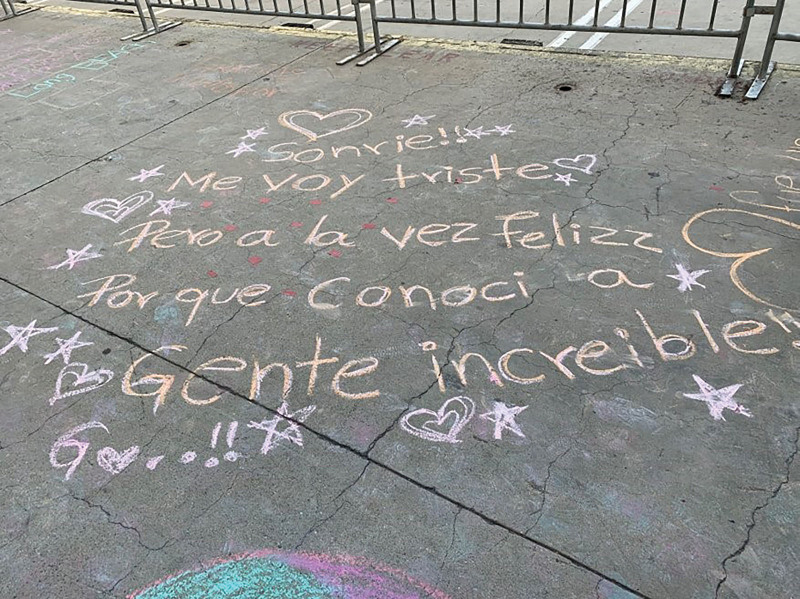 Sonrie!!
Me voy triste
Pero a la vez felizz
Por que Conoci a
Gente increible!!